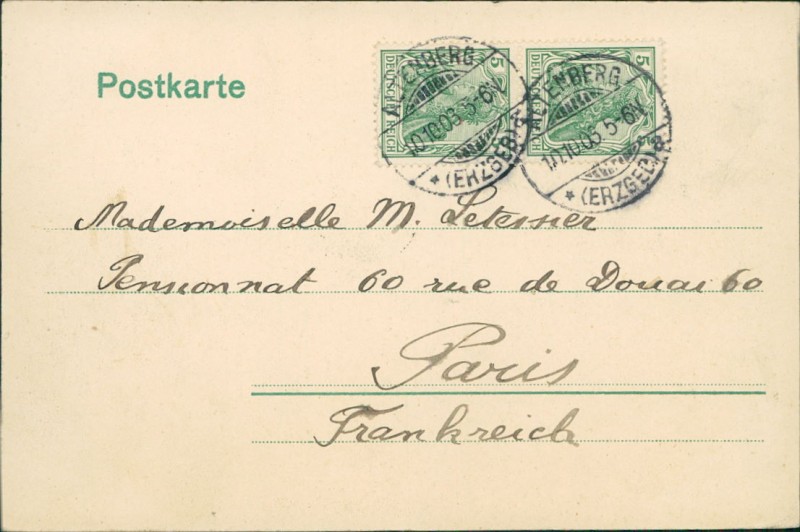 Postkarte
5
DEUTSCHES REICH
5
DEUTSCHES REICH
ALTENBERG
10.10.05. 5-6N.
* (ERZGEB.) a
ALTENBERG
10.10.05. 5-6N.
* (ERZGEB.) a
Mademoiselle M. Letessier
Pensionnat 60 rue de Douai 60
Paris
Frankreich